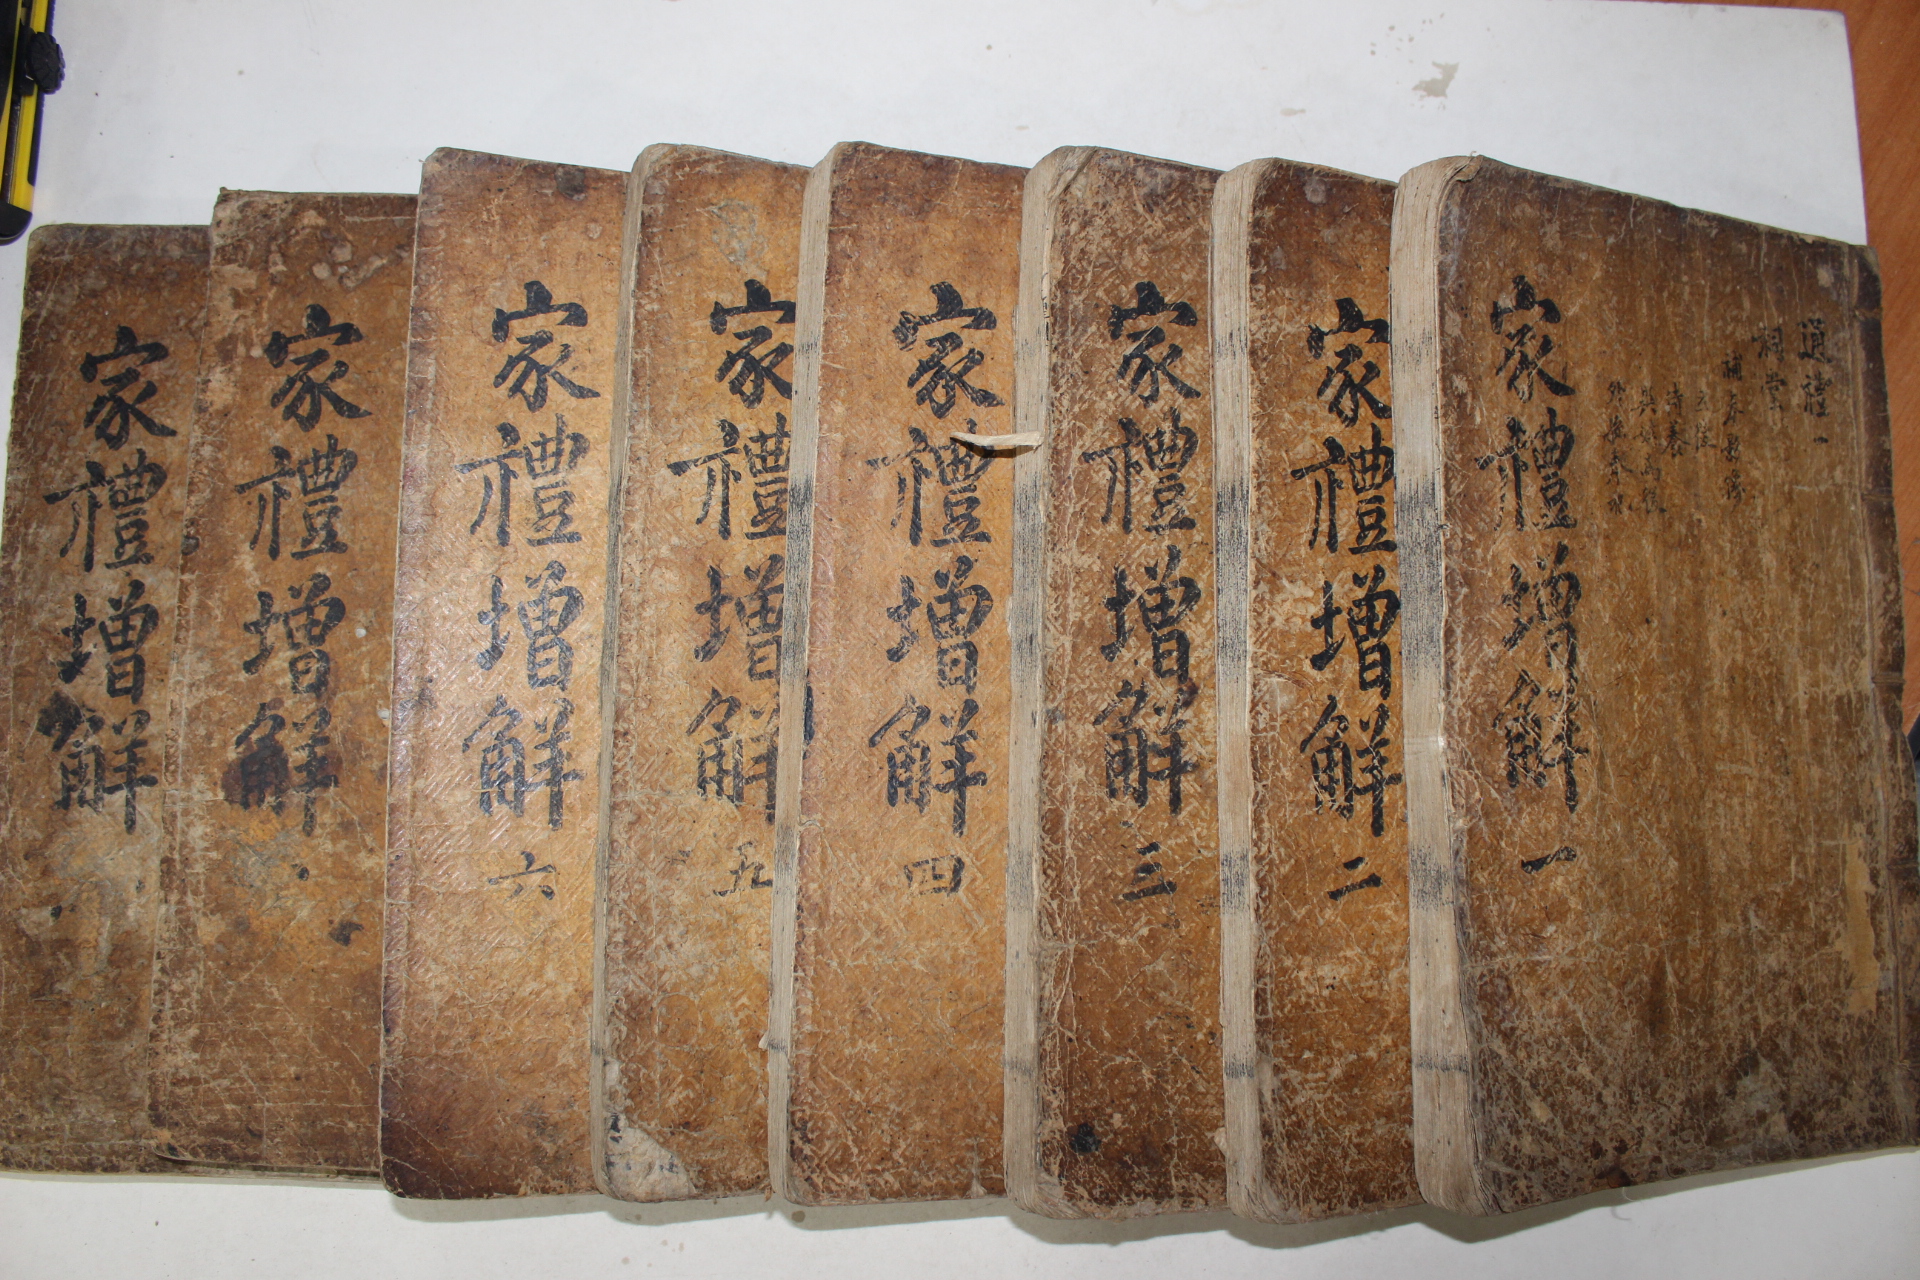 通禮一
祠堂
家禮增解 一
家禮增解 二
家禮增解 三
家禮增解 四
家禮增解 五
家禮增解 六
家禮增解
家禮增解